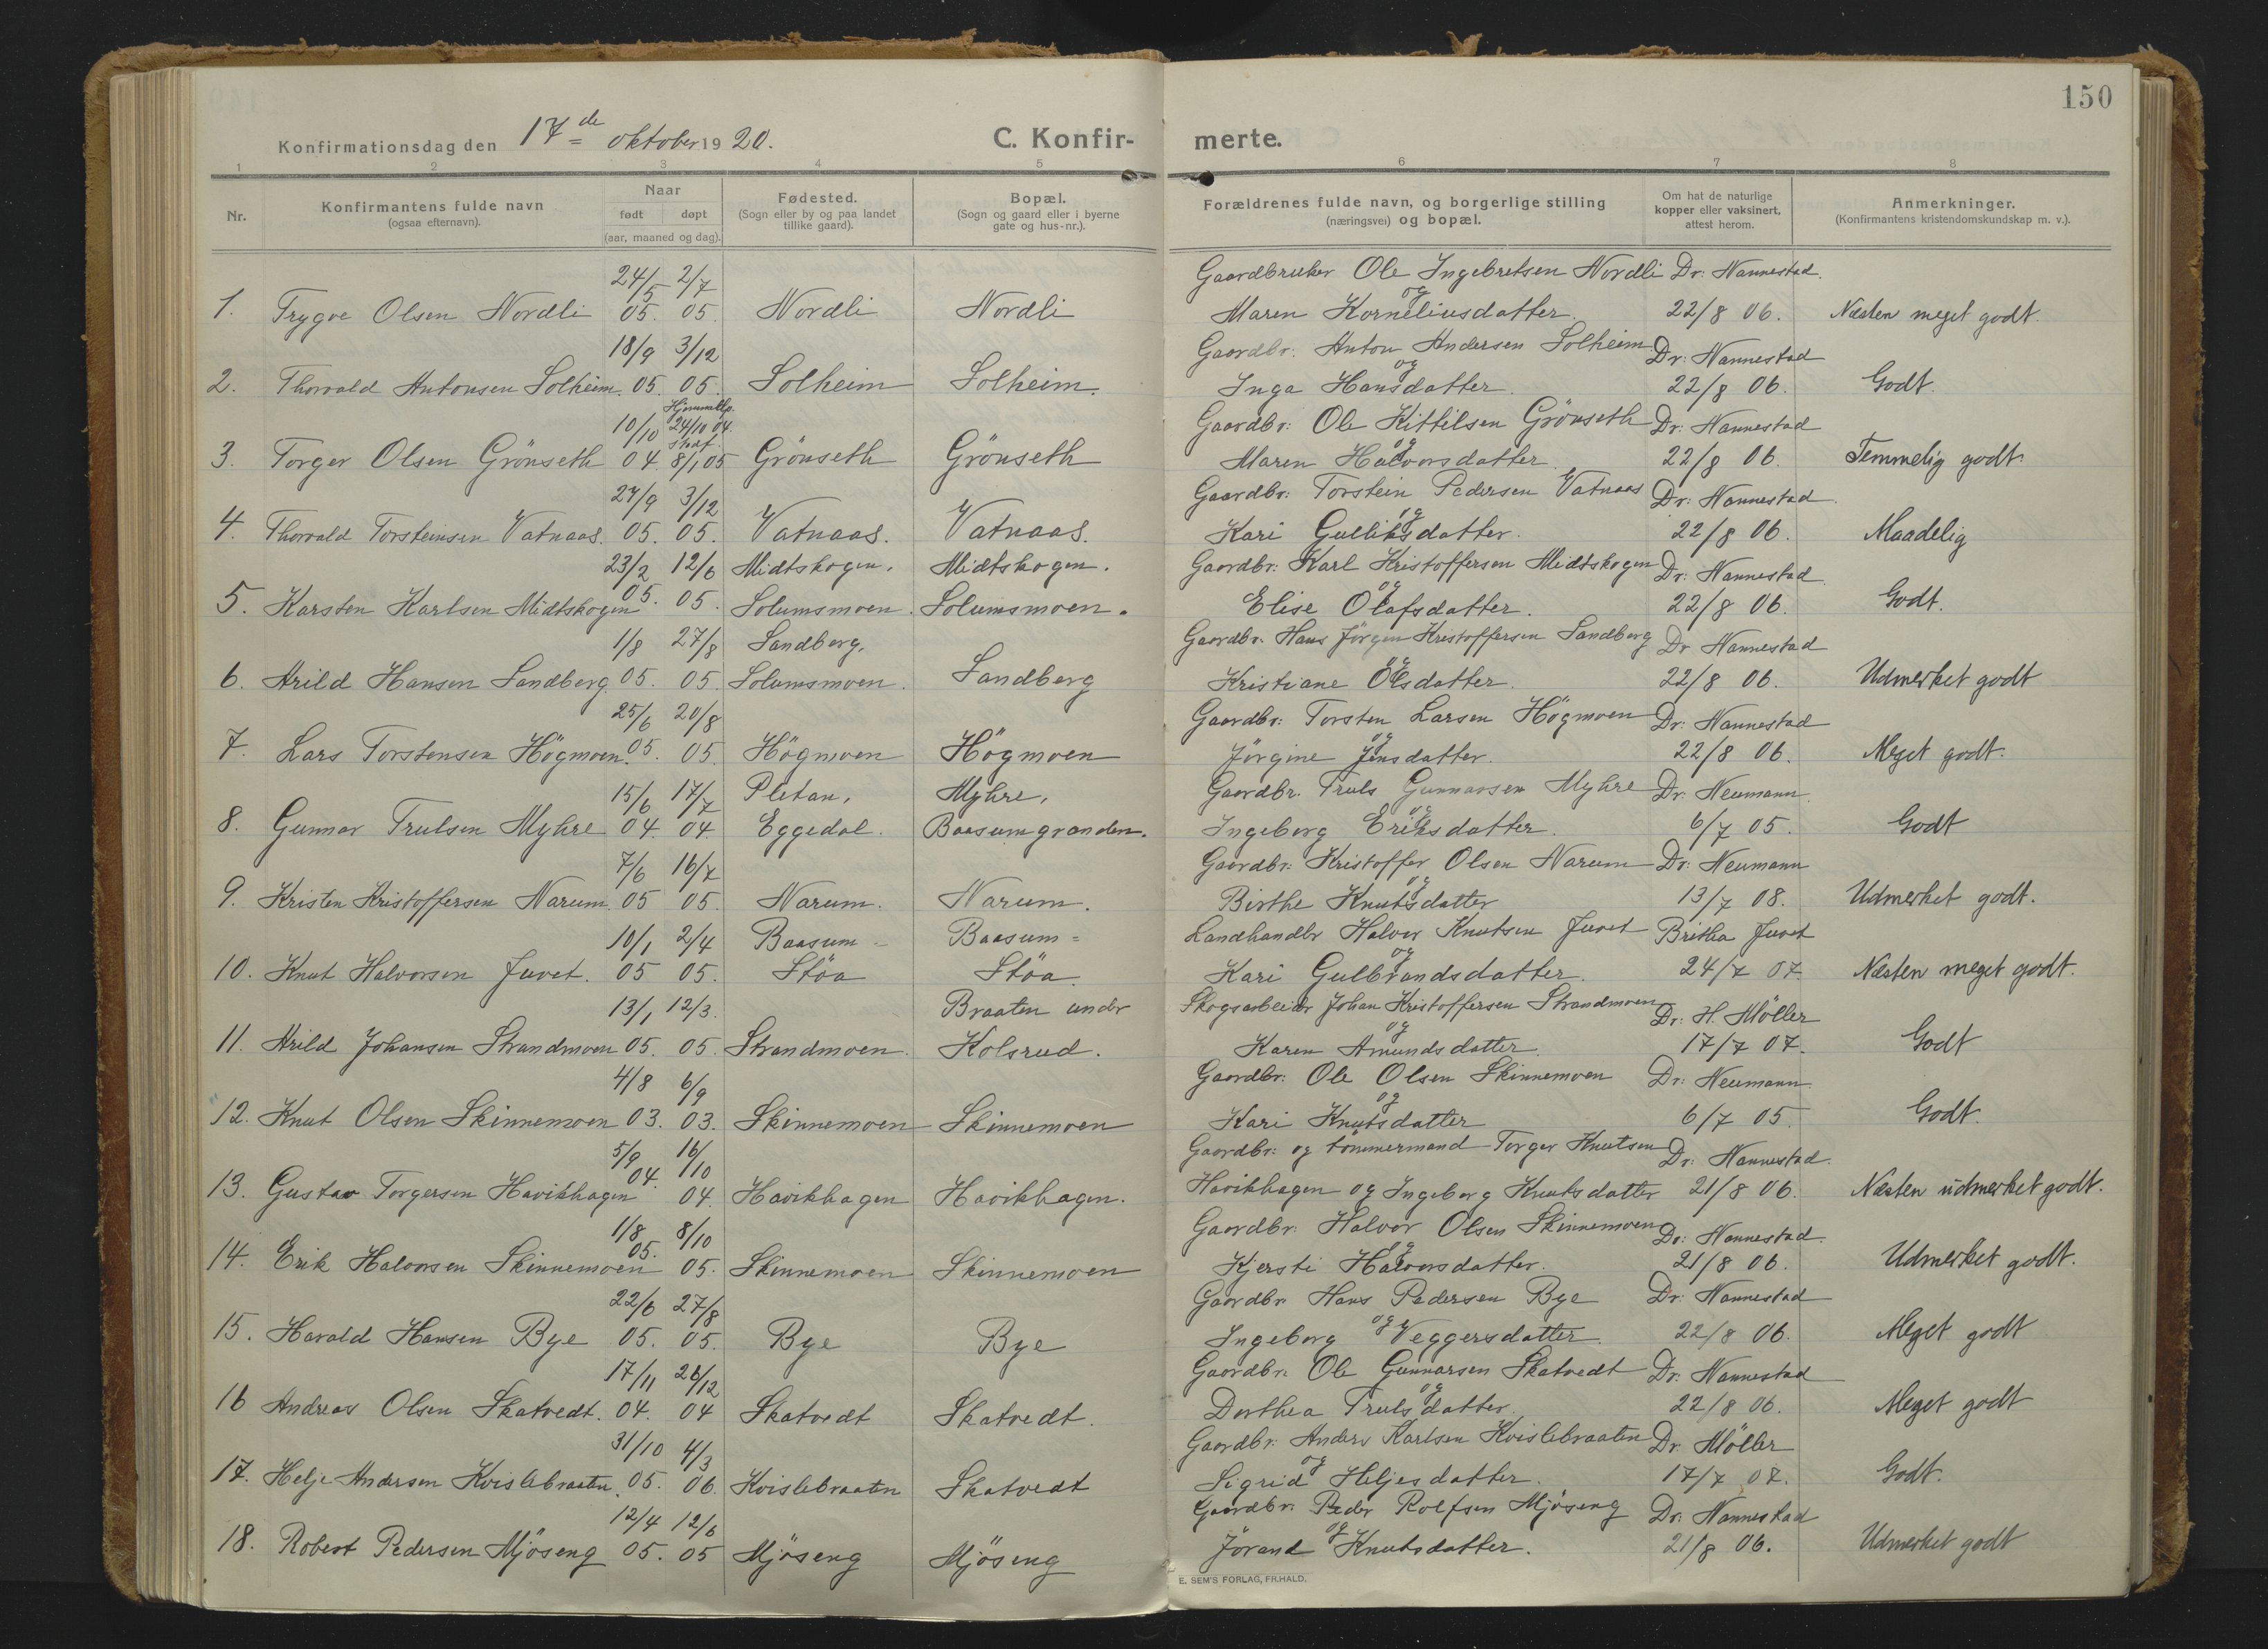 150
Konfirmationsdag den 17de oktober 1920.
C. Konfir-merte.
1 2 3 4 5 6 7 8
Nr.
Konfirmantens fulde navn
(ogsaa efternavn).
Naar
født døpt
(aar, maaned og dag).
Fødested.
(Sogn eller by og paa landet
tillike gaard).
Bopæl.
(Sogn og gaard eller i byerne
gate og hus-nr.).
Forældrenes fulde navn, og borgerlige stilling
(næringsvei) og bopæl.
Om hat de naturlige
kopper eller vaksinert,
attest herom.
Anmerkninger.
(Konfirmantens kristendomskundskap m. v.).
24/5 2/7 Gaardbruker Ole Ingebretsen Nordli Dr: Nannestad.
1. Trygve Olsen Nordli 05. 05. Nordli Nordli og Maren Korneliusdatter. 22/8 06. Næsten meget godt.
18/9 3/12 Gaardbr. Anton Andersen Solheim Dr: Nannestad
2. Thorvald Antonsen Solheim. 05. 05. Solheim Solheim. og Inga Hansdatter. 22/8 06. Godt.
Hjemmedp.
10/10 24/10 04. Gaardbr: Ole Kittilsen Grönseth Dr: Nannestad
stadf.
3. Torger Olsen Grönseth 04. 8/1 05 Grönseth Grönseth og Maren Halvorsdatter. 22/8 06. Temmelig godt.
27/9 3/12 Gaardbr: Torstein Pedersen Vatnaas Dr: Nannestad
4. Thorvald Torsteinsen Vatnaas. 05. 05. Vatnaas. Vatnaas. og Kari Gulliksdatter. 22/8 06. Maadelig
23/2 12/6 Midtskogen. Midtskogen. Gaardbr: Karl Kristoffersen Midtskogen Dr: Nannestad.
5. Karsten Karlsen Midtskogen 05. 05. Solumsmoen. Solumsmoen. og Elise Olafsdatter. 22/8 06. Godt.
1/8 27/8 Sandberg, Gaardbr. Hans Jörgen Kristoffersen Sandberg Dr Nannestad
6. Arild Hansen Sandberg 05. 05. Solumsmoen. Sandberg og Kristiane Olsdatter. 22/8 06. Udmerket godt
25/6 20/8 Gaardbr: Torsten Larsen Högmoen Dr: Nannestad
7. Lars Torstensen Högmoen. 05. 05. Högmoen Högmoen og Jörgine Jensdatter. 22/8 06. Meget godt.
15/6 17/7 Pletan, Myhre, Gaardbr. Truls Gunnarsen Myhre Dr: Neumann.
8. Gunnar Trulsen Myhre 04. 04. Eggedal. Baasumgranden. og Ingeborg Eriksdatter. 6/7 05. Godt
7/6 16/7 Gaardbr: Kristoffer Olsen Narum Dr: Neumann
9. Kristen Kristoffersen Narum. 05 05. Narum. Narum. og Birthe Knutsdatter 13/7 08. Udmerket godt.
10/1 2/4 Baasum- Baasum= Landhandlr Halvor Knutsen Juvet Britha Juvet
10. Knut Halvorsen Juvet. 05 05. Stöa Stöa. og Kari Gulbrandsdatter. 24/7 07. Næsten meget godt.
13/1 12/3. Braaten under Skogsarbeider Johan Kristoffersen Strandmoen Dr: H. Möller
11. Arild Johansen Strandmoen 05. 05. Strandmoen. Kolsrud. og Karen Amundsdatter. 17/7 07. Godt
4/8 6/9 Gaardbr: Ole Olsen Skinnemoen Dr: Neumann
12. Knut Olsen Skinnemoen 03. 03. Skinnemoen Skinnemoen og Kari Knutsdatter 6/7 05. Godt.
5/9 16/10 Gaardbr: og tömmermand Torger Knutsen Dr: Nannestad.
13. Gustav Torgersen Havikhagen 04. 04. Havikhagen Havikhagen. Havikhagen og Ingeborg Knutsdatter 21/8 06. Næsten udmerket godt.
1/8 8/10 Gaardbr: Halvor Olsen Skinnemoen Dr: Nannestad.
14. Erik Halvorsen Skinnemoen 05. 05. Skinnemoen Skinnemoen og Kjersti Halvorsdatter. 21/8 06. Udmerket godt.
22/6 27/8 Gaardbr Hans Pedersen Bye Dr: Nannestad
15. Harald Hansen Bye 05. 05. Bye Bye og Ingeborg Veggersdatter. 22/8 06. Meget godt
17/11 26/12 Gaardbr. Ole Gunnarsen Skatvedt Dr. Nannestad
16 Andreas Olsen Skatvedt. 04. 04 Skatvedt Skatvedt. og Dorthea Trulsdatter. 22/8 06. Meget godt
31/10 4/3 Gaardbr. Anders Karlsen Kvislebraaten Dr. Möller
17. Helje Andersen Kvislebraaten. 05. 06. Kvislebraaten Skatvedt og Sigrid Heljesdatter. 17/7 07. Godt.
12/4 12/6 Gaardbr: Peder Rolfsen Mjöseng Dr: Nannestad
18. Robert Pedersen Mjöseng 05. 05 Mjöseng Mjöseng og Jörand Knutsdatter. 21/8 06. Udmerket godt
E. SEM'S FORLAG, FR.HALD.